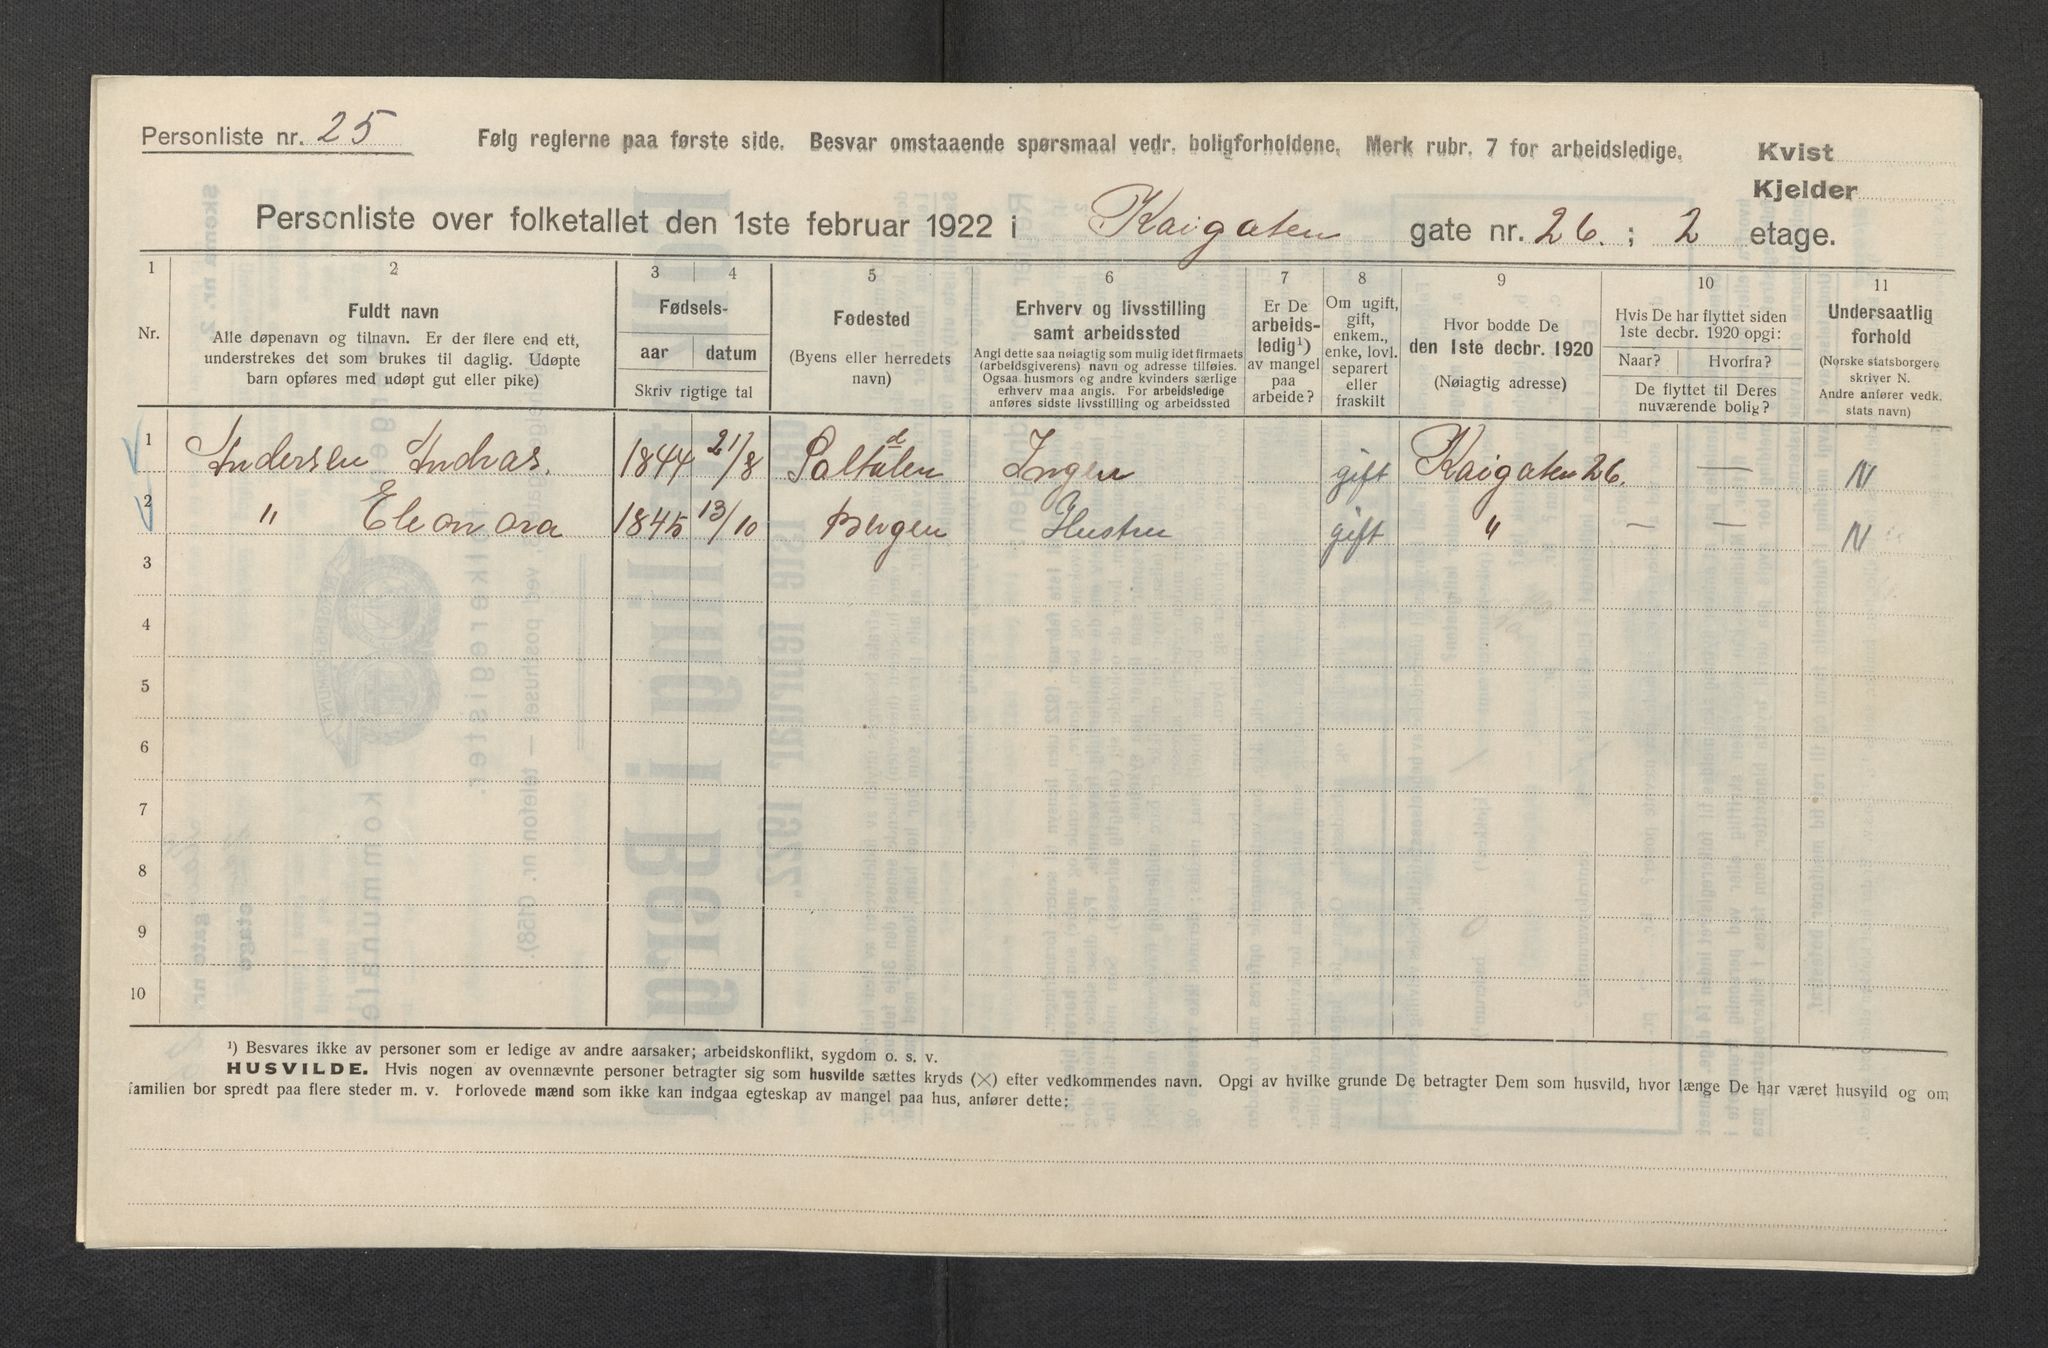 Personliste nr. 25
Følg reglerne paa første side. Besvar omstaaende spørsmaal vedr. boligforholdene. Merk rubr. 7 for arbeidsledige.
Kvist
Kjelder
Personliste over folketallet den 1ste februar 1922 i Kaigaten gate nr. 26. ; 2 etage.
1 2 3 4 5 6 7 8 9 10 11
Nr.
Fuldt navn
Alle døpenavn og tilnavn. Er der flere end ett,
understrekes det som brukes til daglig. Udøpte
barn opføres med udøpt gut eller pike)
Fødsels-
aar datum
Skriv rigtige tal
Fødested
(Byens eller herredets
navn)
Erhverv og livsstilling
samt arbeidssted
Angi dette saa nøiagtig som mulig idet firmaets
(arbeidsgiverens) navn og adresse tilføies.
Ogsaa husmors og andre kvinders særlige
erhverv maa angis. For arbeidsledige
anføres sidste livsstilling og arbeidssted
Er De
arbeids-
ledig¹)
av mangel
paa
arbeide?
Om ugift,
gift,
enkem.,
enke, lovl.
separert
eller
fraskilt
Hvor bodde De
den 1ste decbr. 1920
(Nøiagtig adresse)
Hvis De har flyttet siden
1ste decbr. 1920 opgi:
Naar? Hvorfra?
De flyttet til Deres
nuværende bolig?
Undersaatlig
forhold
(Norske statsborgere
skriver N.
Andre anfører vedk.
stats navn)
1 Andersen Andreas. 1844 21/8 Saltdalen Ingen gift Kaigaten 26. — N
2 " Eleonora 1845 13/10 Bergen Hustru gift " — — N
3
4
5
6
7
8
9
10
¹) Besvares ikke av personer som er ledige av andre aarsaker; arbeidskonflikt, sygdom o. s. v.
HUSVILDE. Hvis nogen av ovennævnte personer betragter sig som husvilde sættes kryds (×) efter vedkommendes navn. Opgi av hvilke grunde De betragter Dem som husvild, hvor længe De har været husvild og om
familien bor spredt paa flere steder m. v. Forlovede mænd som ikke kan indgaa egteskap av mangel paa hus, anfører dette: